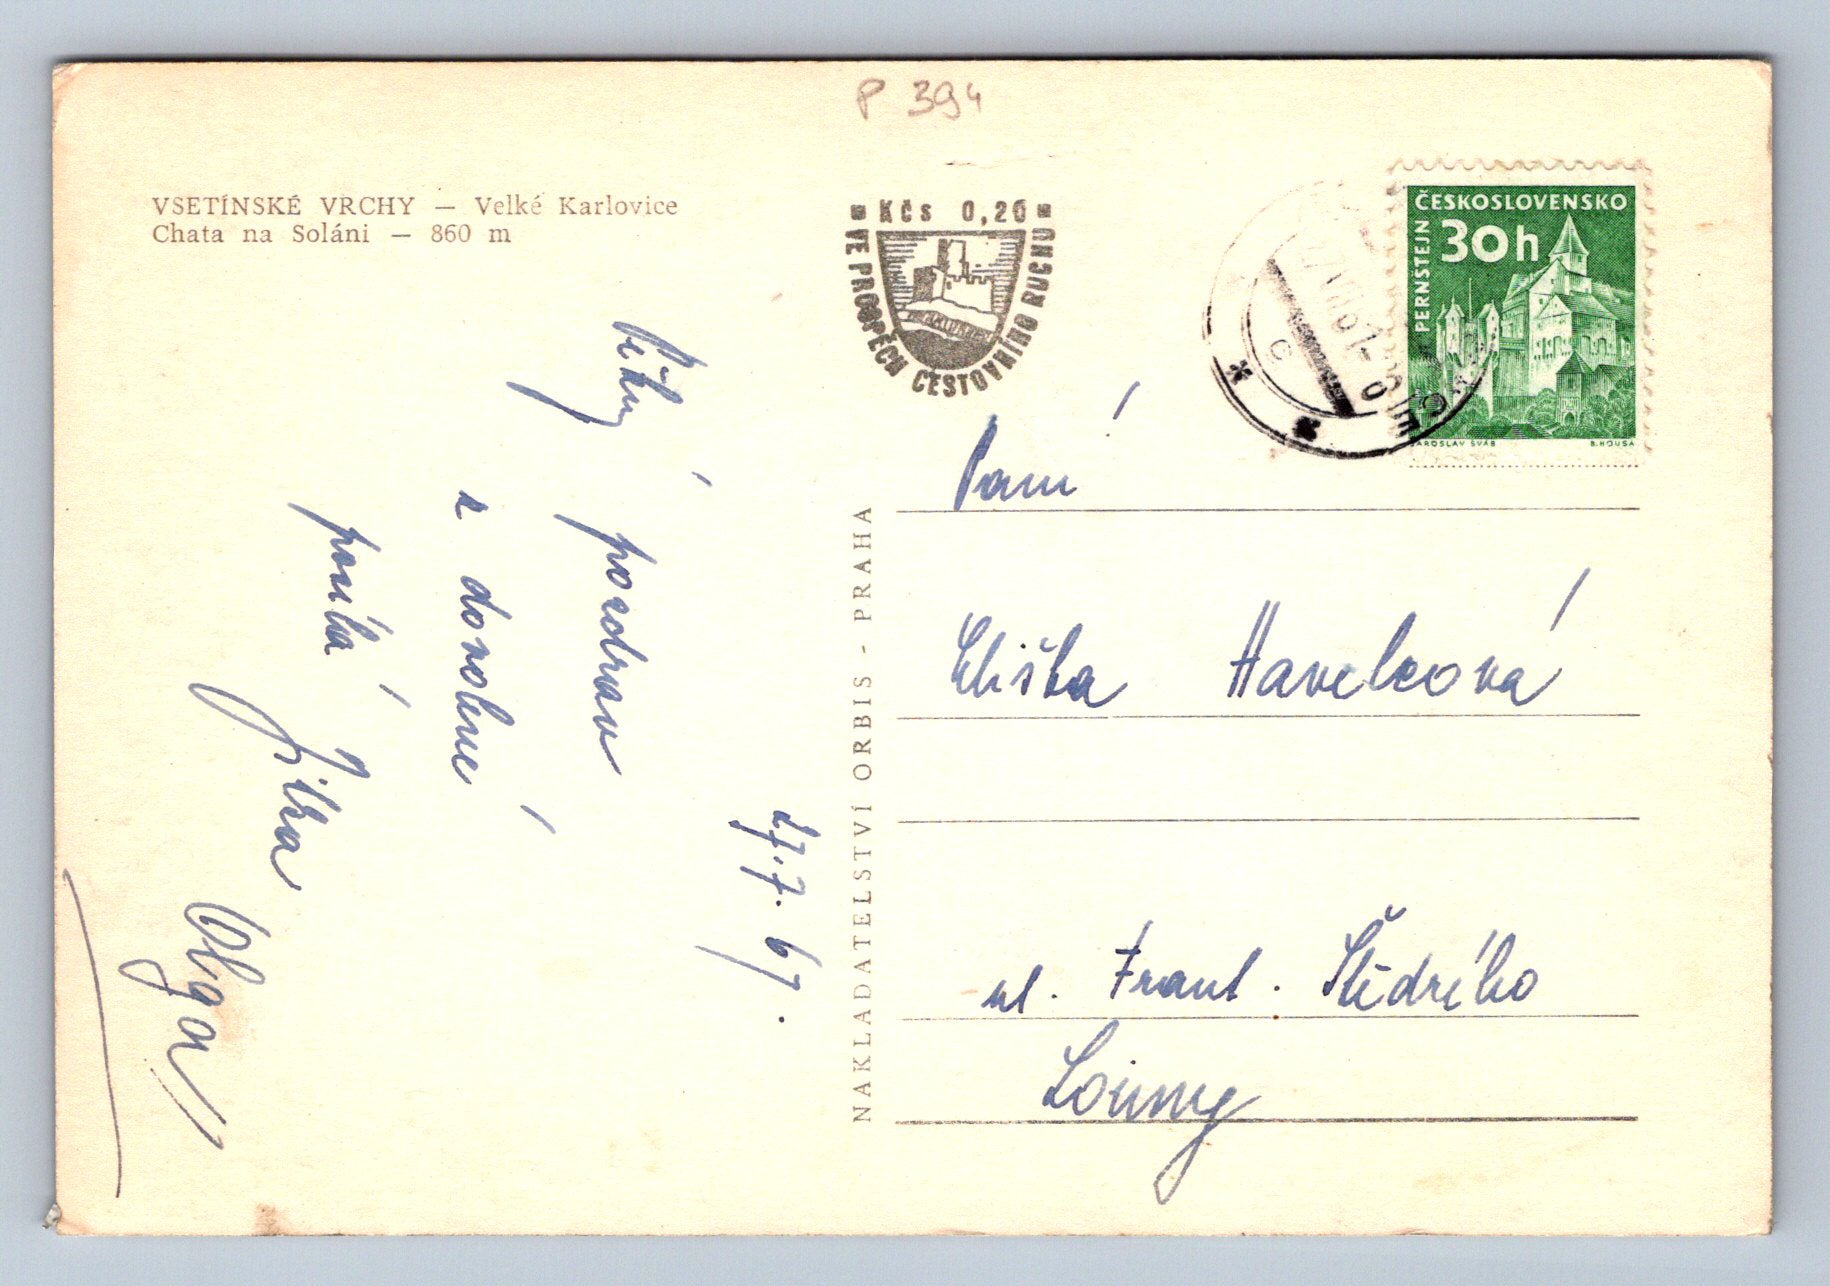 P 394
VSETÍNSKÉ VRCHY — Velké Karlovice
Chata na Soláni — 860 m
KČs 0,20
VE PROSPĚCH CESTOVNÍHO RUCHU
ČESKOSLOVENSKO
30h
PERNŠTEJN
JAROSLAV ŠVÁB
B. HOUSA
27. 7. 67.
pozdrav
z dovolené
posílá
Jitka
Olga
NAKLADATELSTVÍ ORBIS - PRAHA
Paní
Eliška Havelcová
ul. Frant. Štědrého
Louny